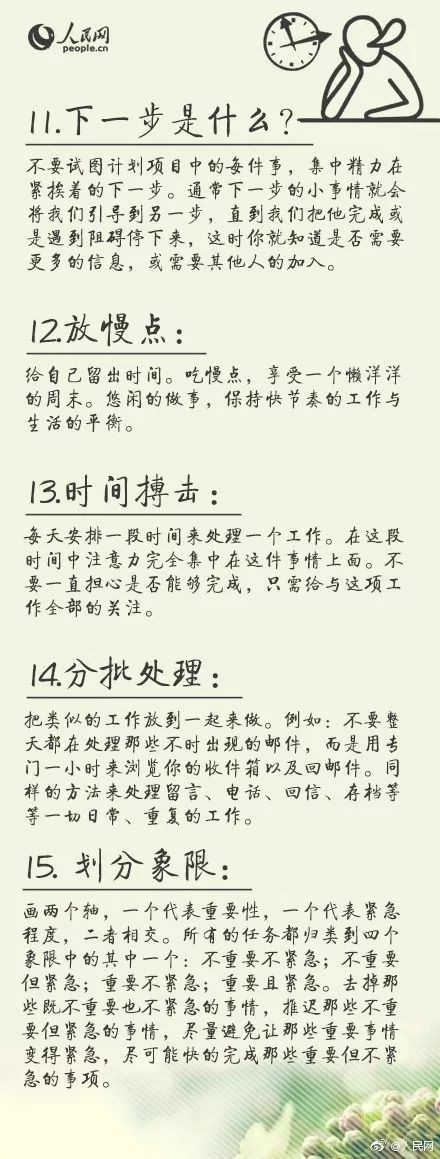 人民网
people.cn
11.下一步是什么?
不要试图计划项目中的每件事，集中精力在
紧挨着的下一步。通常下一步的小事情就会
将我们引导到另一步，直到我们把他完成或
是遇到阻碍停下来，这时你就知道是否需要
更多的信息，或需要其他人的加入。
12.放慢点：
给自己留出时间。吃慢点，享受一个懒洋洋
的周末。悠闲的做事，保持快节奏的工作与
生活的平衡。
13.时间搏击：
每天安排一段时间来处理一个工作。在这段
时间中注意力完全集中在这件事情上面。不
要一直担心是否能够完成，只需给与这项工
作全部的关注。
14.分批处理：
把类似的工作放到一起来做。例如：不要整
天都在处理那些不时出现的邮件，而是用专
门一小时来浏览你的收件箱以及回邮件。同
样的方法来处理留言、电话、回信、存档等
等一切日常、重复的工作。
15. 划分象限：
画两个轴，一个代表重要性，一个代表紧急
程度，二者相交。所有的任务都归类到四个
象限中的其中一个：不重要不紧急；不重要
但紧急；重要不紧急；重要且紧急。去掉那
些既不重要也不紧急的事情，推迟那些不重
要但紧急的事情，尽量避免让那些重要事情
变得紧急，尽可能快的完成那些重要但不紧
急的事项。
@人民网